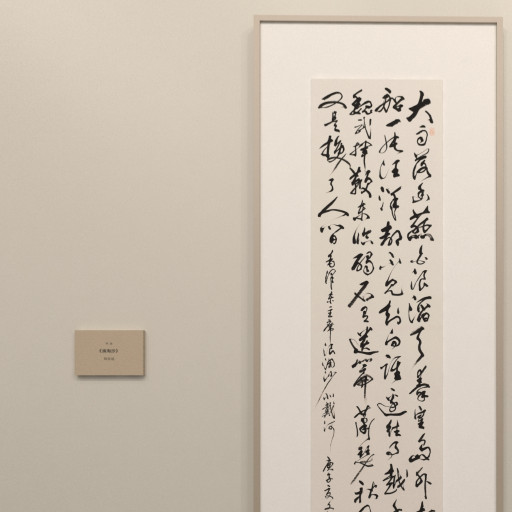 大雨落幽燕白浪滔天秦皇岛外打
船一片汪洋都不见知向谁边往事越千
魏武挥鞭东临碣石有遗篇萧瑟秋风
又是换了人间 毛泽东主席浪淘沙北戴河 庚子夏